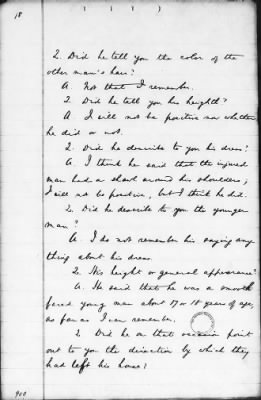 18
2. Did he tell you the color of the
other man's hair?
A. Not that I remember.
2. Did he tell you his heighth?
A I will not be positive now whether
he did or not.
2. Did he describe to you his dress?
A. I think he said that the injured
man had a shawl around his shoulders;
I will not be positive, but I think he did.
2. Did he describe to you the younger
man?
A. I do not remember his saying any
thing about his dress.
2. His height or general appearance?
A. He said that he was a smooth
faced young man about 17 or 18 years of age,
as far as I can remember.
2. Did he on that occasion point
out to you the direction by which they
had left his house?